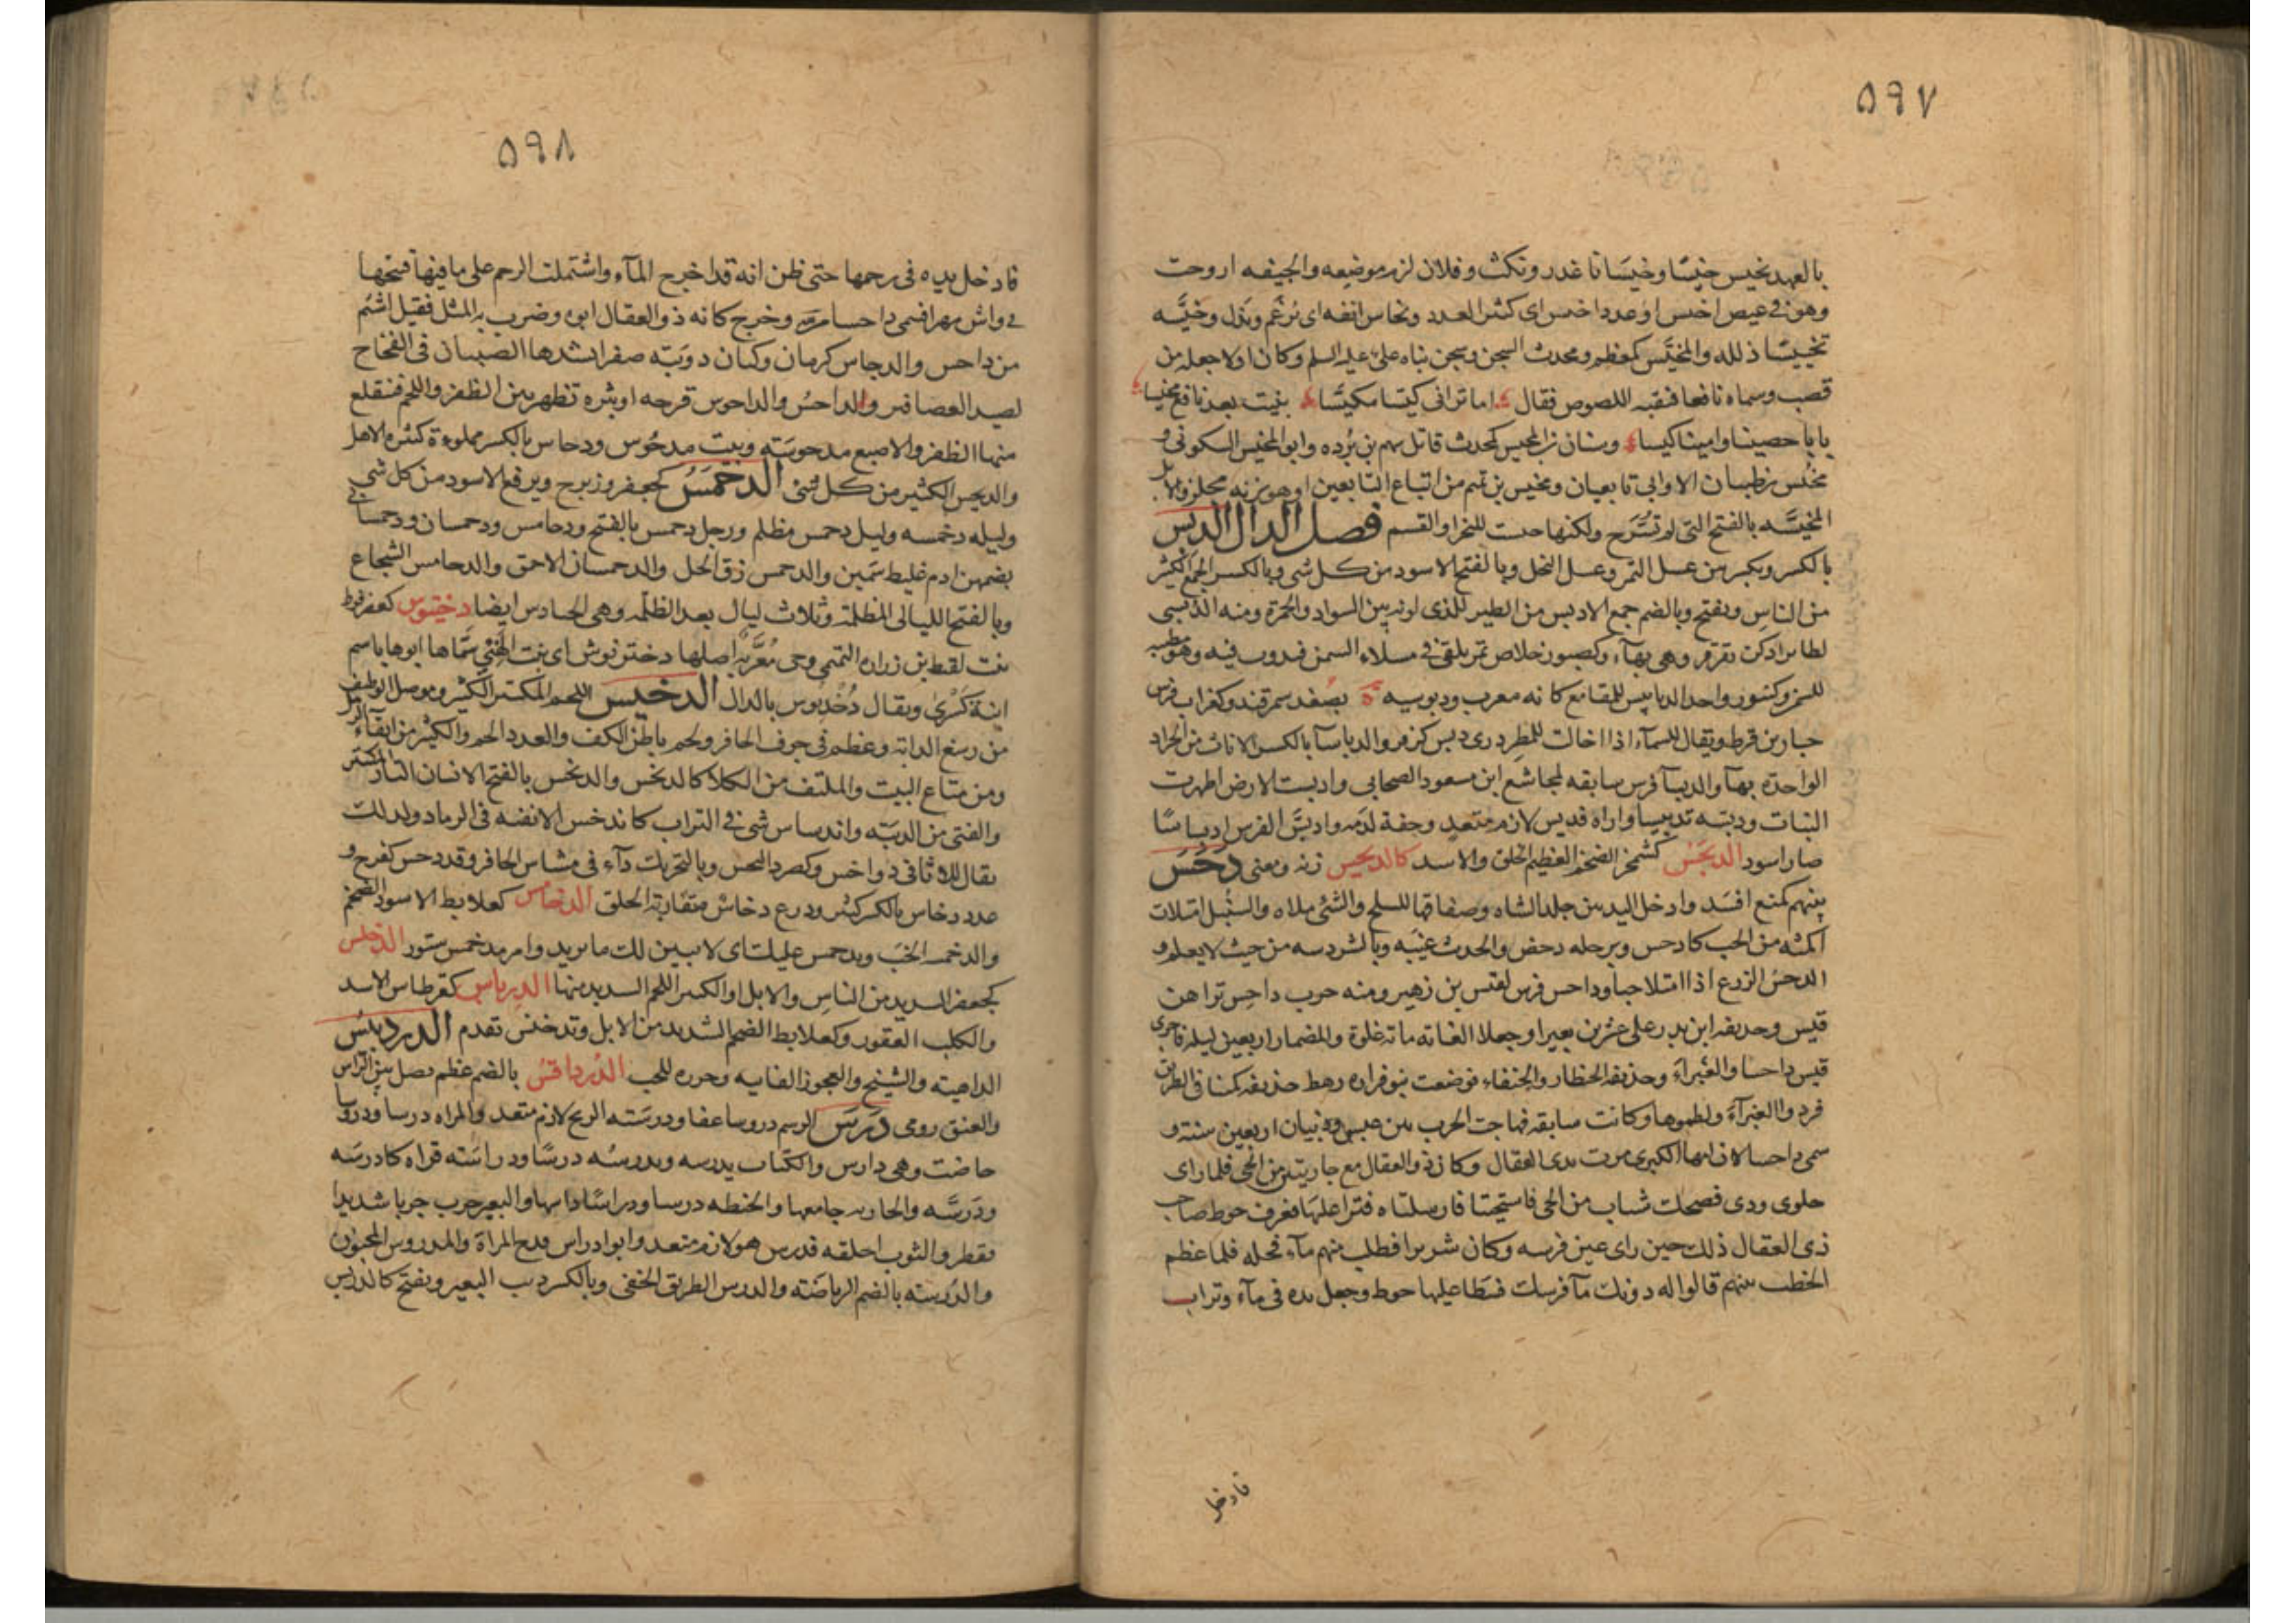 ۵۹۷
بالعهد يخيس خيسا وخيسانا غدر ونكث وفلان لزم موضعه والجيفه اروحت
وهو في عيص اخيس او عدد اخيس اى كثير العدد ويخاس انفه اى يرغم ويذل وخيسه
تخييسا ذلله والمخيس كمعظم ومحدث السجن وسجن بناه على عليه السلم وكان اولا جعله من
قصب وسماه نافعا فنقبه اللصوص فقال اما ترانى كيسا مكيسا بنيت بعد نافع مخيسا
بابا حصينا وامينا كيسا وسنان بن المخيس كمحدث قاتل سهم بن برده وابو المخيس السكونى و
مخيس بن ظبيان الاوابى تابعيان ومخيس بن تميم من اتباع التابعين او هو بزنه مجلز والابل
المخيسه بالفتح التى لم تسرح ولكنها حبست للنحر او القسم فصل الدال الدبس
بالكسر وبكسرتين عسل التمر وعسل النحل وبالفتح الاسود من كل شى وبالكسر الجمع الكثير
من الناس ويفتح وبالضم جمع الادبس من الطير للذى لونه بين السواد والحمرة ومنه الدبسى
لطائر ادكن يقرقر وهى بهاء وكصبور خلاص تمر يلقى فى مسلاء السمن فيذوب فيه وهو مطيبه
للسمن وكتنور واحد الدبابيس للمقامع كانه معرب ودبوسيه ة بصغد سمرقند وكغراب فرس
جبار بن قرط ويقال للسماء اذا اخالت للمطر درى دبس كزفر والدباساء بالكسر الاناث من الجراد
الواحدة بهاء والدبساء فرس سابقه لمجاشع ابن مسعود الصحابى وادبست الارض اظهرت
النبات ودبسه تدبيسا واراه فدبس لازم متعد وخفه لدمه وادبس الفرس ادبساسا
صار اسود الدبخس كشمخر الضخم العظيم الخلق والاسد كالدبحس زنه ومعنى دحس
بينهم كمنع افسد وادخل اليد بين جلد الشاه وصفاقها للسلخ والشئ ملاه والسنبل امتلات
اكمته من الحب كادحس وبرجله دحض والحديث غيبه وبالشر دسه من حيث لا يعلم و
الدحس الزرع اذا امتلا حبا وداحس فرس لقيس بن زهير ومنه حرب داحس تراهن
قيس وحذيفه ابن بدر على عشرين بعيرا وجعلا الغايه مايه غلوة والمضمار اربعين ليله فاجرى
قيس داحسا والغبراء وحذيفه الخطار والحنفاء فوضعت بنو فزاره رهط حذيفه كمينا فى الطريق
فردوا الغبراء ولطموها وكانت سابقه فهاجت الحرب بين عبس وذبيان اربعين سنة و
سمى داحسا لان امها الكبرى مرت بذى العقال وكان ذو العقال مع جاريتين من الحى فلما راى
جلوى ودى فضحك شباب من الحى فاستحيتا فارسلتاه فنزا عليها فعرف حوط صاحب
ذى العقال ذلك حين راى عين فرسه وكان شريرا فطلب منهم ماء فحله فلما عظم
الخطب بينهم قالوا له دونك ماء فرسك فسطا عليها حوط وجعل يده فى ماء وتراب
فادخل
۵۹۸
فادخل يده فى رحمها حتى ظن انه قد اخرج الماء واشتملت الرحم على ما فيها فنتجها
مهرا فسمى داحسا وخرج كانه ذو العقال ابوه وضرب به المثل فقيل اشئم
من داحس والدحاس كرمان وكتان دويبه صفرا يشدها الصبيان فى الفخاخ
لصيد العصافير والداحس والداحوس قرحه او بثره تظهر بين الظفر واللحم فينقلع
منها الظفر والاصبع مدحوسة وبيت مدحوس ودحاس بالكسر مملوءة كثيره الاهل
والديحس الكثير من كل شى الدحمس كجعفر وزبرج وبرقع الاسود من كل شى
وليله دحمسه وليل دحمس مظلم ورجل دحمس بالفتح ودحامس ودحمسان ودحمسانى
بضمهن ادم غليظ سمين والدحمس زق الخل والدحمسان الاحمق والدحامس الشجاع
وبالفتح الليالى المظلمة وثلاث ليال بعد الظلمه وهى الحنادس ايضا دختنوس كعضرفوط
بنت لقيط بن زراره التميمى وهى معربه اصلها دختر نوش اى بنت الهنئ سماها ابوها باسم
ابنة كسرى ويقال دخدنوس بالدال الدخيس اللحم المكتنز الكثير وموصل الوظيف
من رسغ الدابه وعظم فى جوف الحافر ولحم باطن الكف والعدد الجم والكثير من انقاء الرمل
ومن متاع البيت والملتف من الكلا كالدخس والدخس بالفتح الانسان التار المكتنز
والفتى من الدببه واندساس شى فى التراب كما تدخس الاثفيه فى الرماد ولذلك
يقال للاثافى دواخس وكصرد البحس وبالتحريك داء فى مشاش الحافر وقد دخس كفرح و
عدد دخاس بالكسر كثير ودرع دخاس متقاربة الحلق الدخامس كعلابط الاسود الضخم
والدخمسه الخب ويدخمس عليك اى لا يبين لك ما يريد وامر مدخمس مستور الدخنس
كجعفر الشديد من الناس والابل او الكثير اللحم الشديد منها الدرباس كقرطاس الاسد
والكلب العقور وكعلابط الضخم الشديد من الابل وتدربس تقدم الدردبيس
الداهيه والشيخ والعجوز الفانيه وخرزه للحب الدرداقس بالضم عظم يصل بين الراس
والعنق رومى درس الرسم دروسا عفا ودرسته الريح لازم متعد والمراه درسا ودروسا
حاضت وهى دارس والكتاب يدرسه ويدرسه درسا ودراسته قراه كادرسه
ودرسه والجاريه جامعها والحنطه درسا ودراسا داسها والبعير جرب جربا شديدا
فقطر والثوب اخلقه فدرس هو لازم متعد وابو ادراس فرج المراة والمدروس المجنون
والدرسه بالضم الرياضه والدرس الطريق الخفى وبالكسر ذنب البعير ويفتح كالدريس